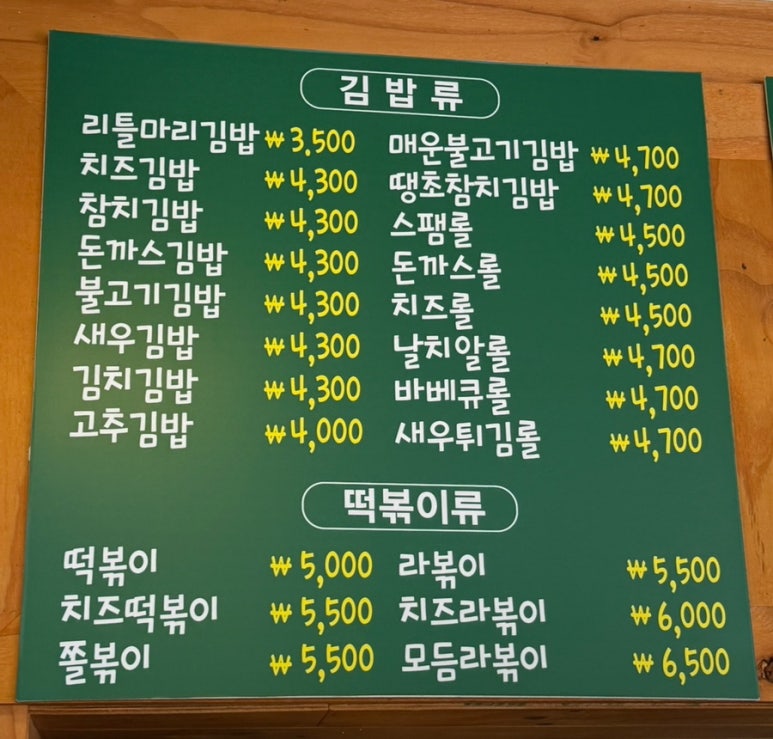 김밥류
리틀마리김밥 ₩3,500
치즈김밥 ₩4,300
참치김밥 ₩4,300
돈까스김밥 ₩4,300
불고기김밥 ₩4,300
새우김밥 ₩4,300
김치김밥 ₩4,300
고추김밥 ₩4,000
매운불고기김밥 ₩4,700
땡초참치김밥 ₩4,700
스팸롤 ₩4,500
돈까스롤 ₩4,500
치즈롤 ₩4,500
날치알롤 ₩4,700
바베큐롤 ₩4,700
새우튀김롤 ₩4,700
떡볶이류
떡볶이 ₩5,000
치즈떡볶이 ₩5,500
쫄볶이 ₩5,500
라볶이 ₩5,500
치즈라볶이 ₩6,000
모듬라볶이 ₩6,500